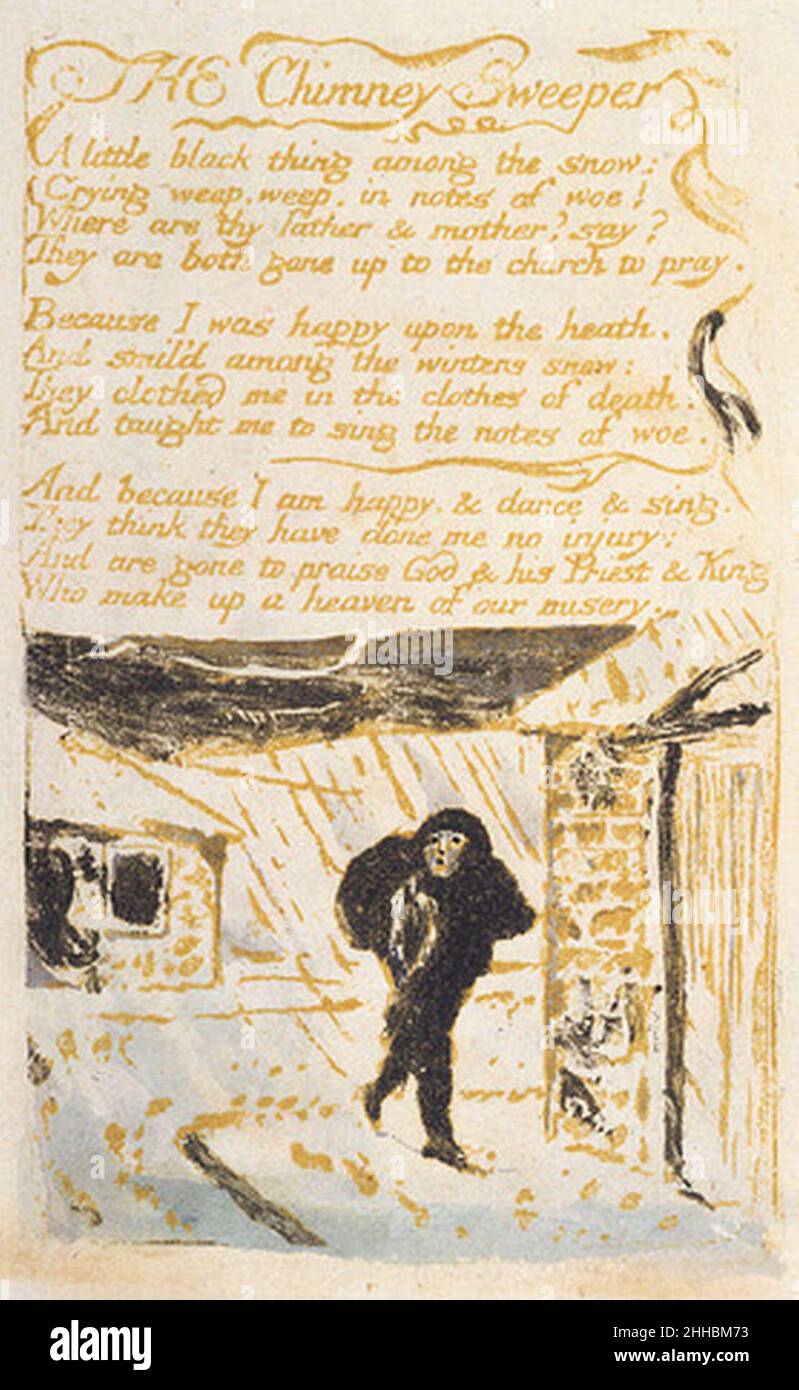 THE Chimney Sweeper
A little black thing among the snow:
Crying weep, weep, in notes of woe!
Where are thy father & mother? say?
They are both gone up to the church to pray.
Because I was happy upon the heath,
And smil'd among the winters snow:
They clothed me in the clothes of death,
And taught me to sing the notes of woe.
And because I am happy, & dance & sing,
They think they have done me no injury:
And are gone to praise God & his Priest & King
Who make up a heaven of our misery.
alamy
Image ID: 2HHBM73
www.alamy.com